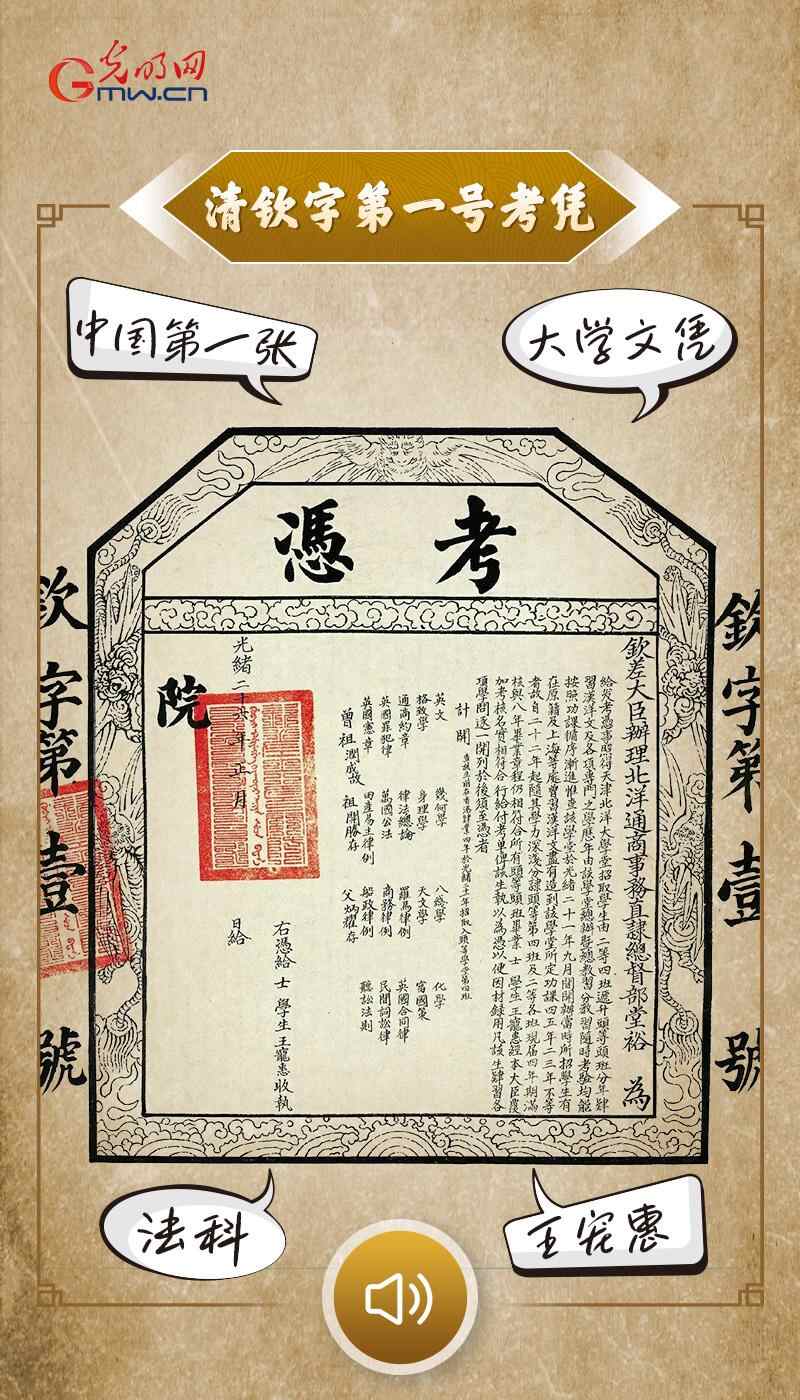 光明网
GMW.CN
清钦字第一号考凭
中国第一张
大学文凭
考憑
欽字第壹號
欽差大臣辦理北洋通商事務直隸總督部堂裕 為
給發考憑事照得天津北洋大學堂招取學生由二等四班遞升頭等頭班分年肄
習漢洋文及各項專門之學歷八年由該學堂總辦暨總教習分教習隨時考驗均能
按照功課循序漸進惟查該學堂於光緒二十一年九月間開辦當時所招學生有
在原籍及上海等處曾習漢洋文盡有造到該學堂所定功課四五年二三年不等
者故自二十二年起隨其學力深淺分隸頭等第四班及二等各班現届四年期滿
核與八年畢業章程仍相符合所有頭等頭班畢業 士 學生王寵惠經本大臣覆
加考核名實相符合行給付考單俾該生執以為憑以便因材錄用凡該生肄習各
項學問逐一開列於後須至憑者
計開
英文 幾何學 八線學 化學
格致學 身理學 天文學 富國策
通商約章 律法總論 羅馬律例 英國合同律
英國罪犯律 萬國公法 商務律例 民間詞訟律
英國憲章 田產易主律例 船政律例 聽訟法則
曾祖潤成故 祖開勝存 父炳耀存
右憑給 士 學生王寵惠收執
光緒二十六年正月 日給
院
欽字第壹號
法科
王宠惠